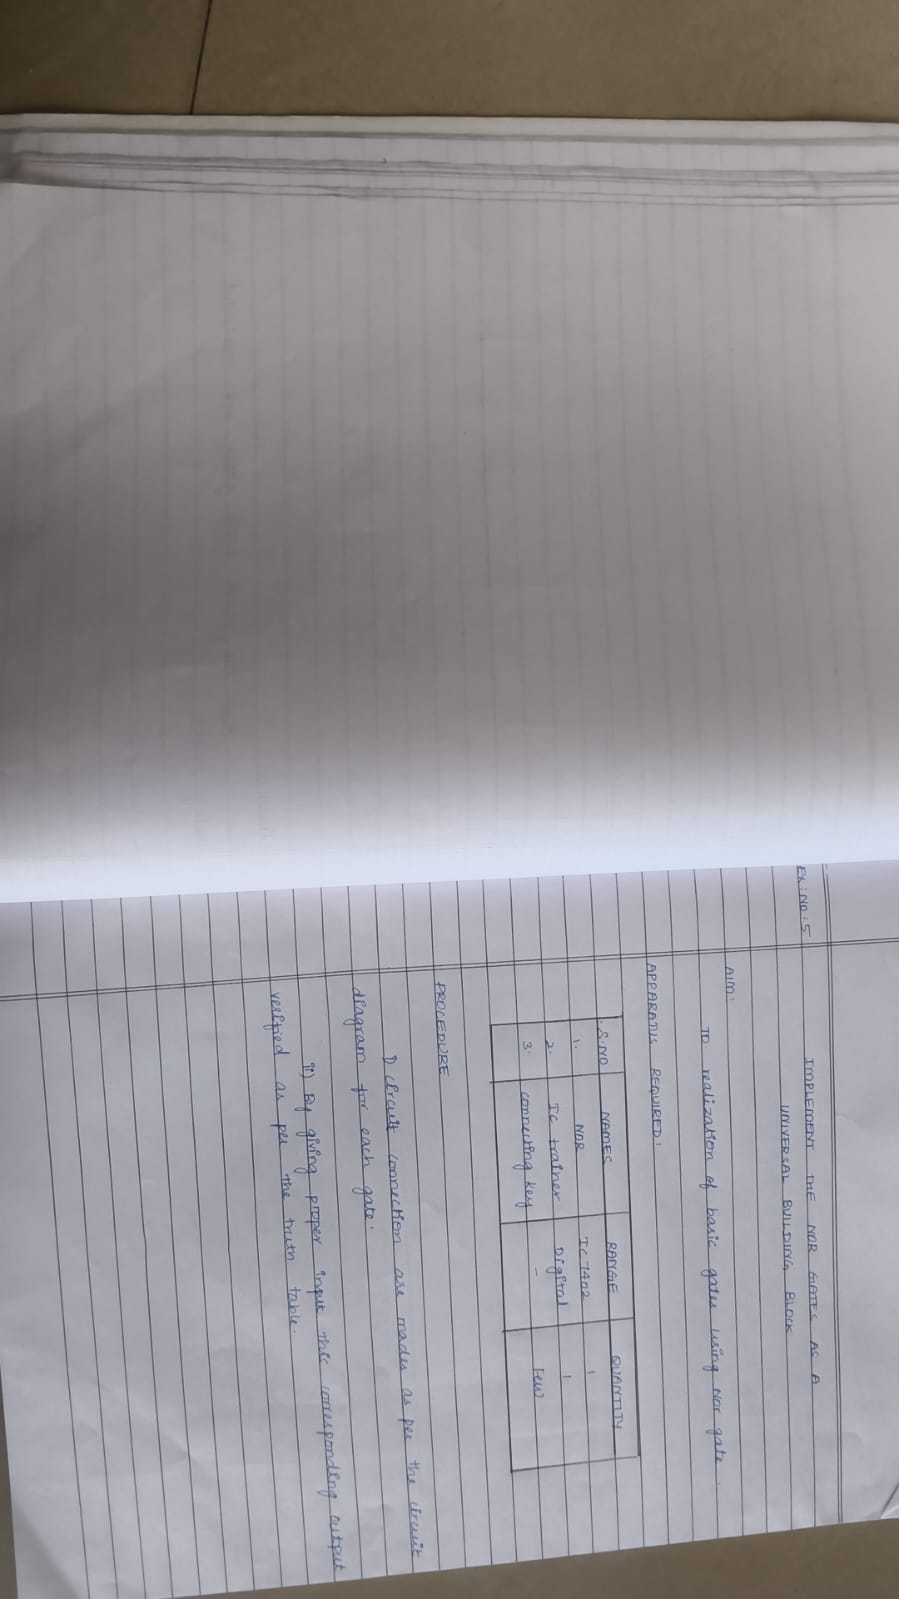 Ex: No: 5
IMPLEMENT THE NOR GATES AS A
UNIVERSAL BUILDING BLOCK
AIM:
To realization of basic gates using Nor gate.
APPARATUS REQUIRED:
S.NO NAMES RANGE QUANTITY
1. NOR Ic 7402 1
2. Ic trainer Digital 1
3. connecting key - Few
PROCEDURE
i) circuit connection are mades as per the circuit
diagram for each gate.
ii) By giving proper input this corresponding output
verified as per the truth table.